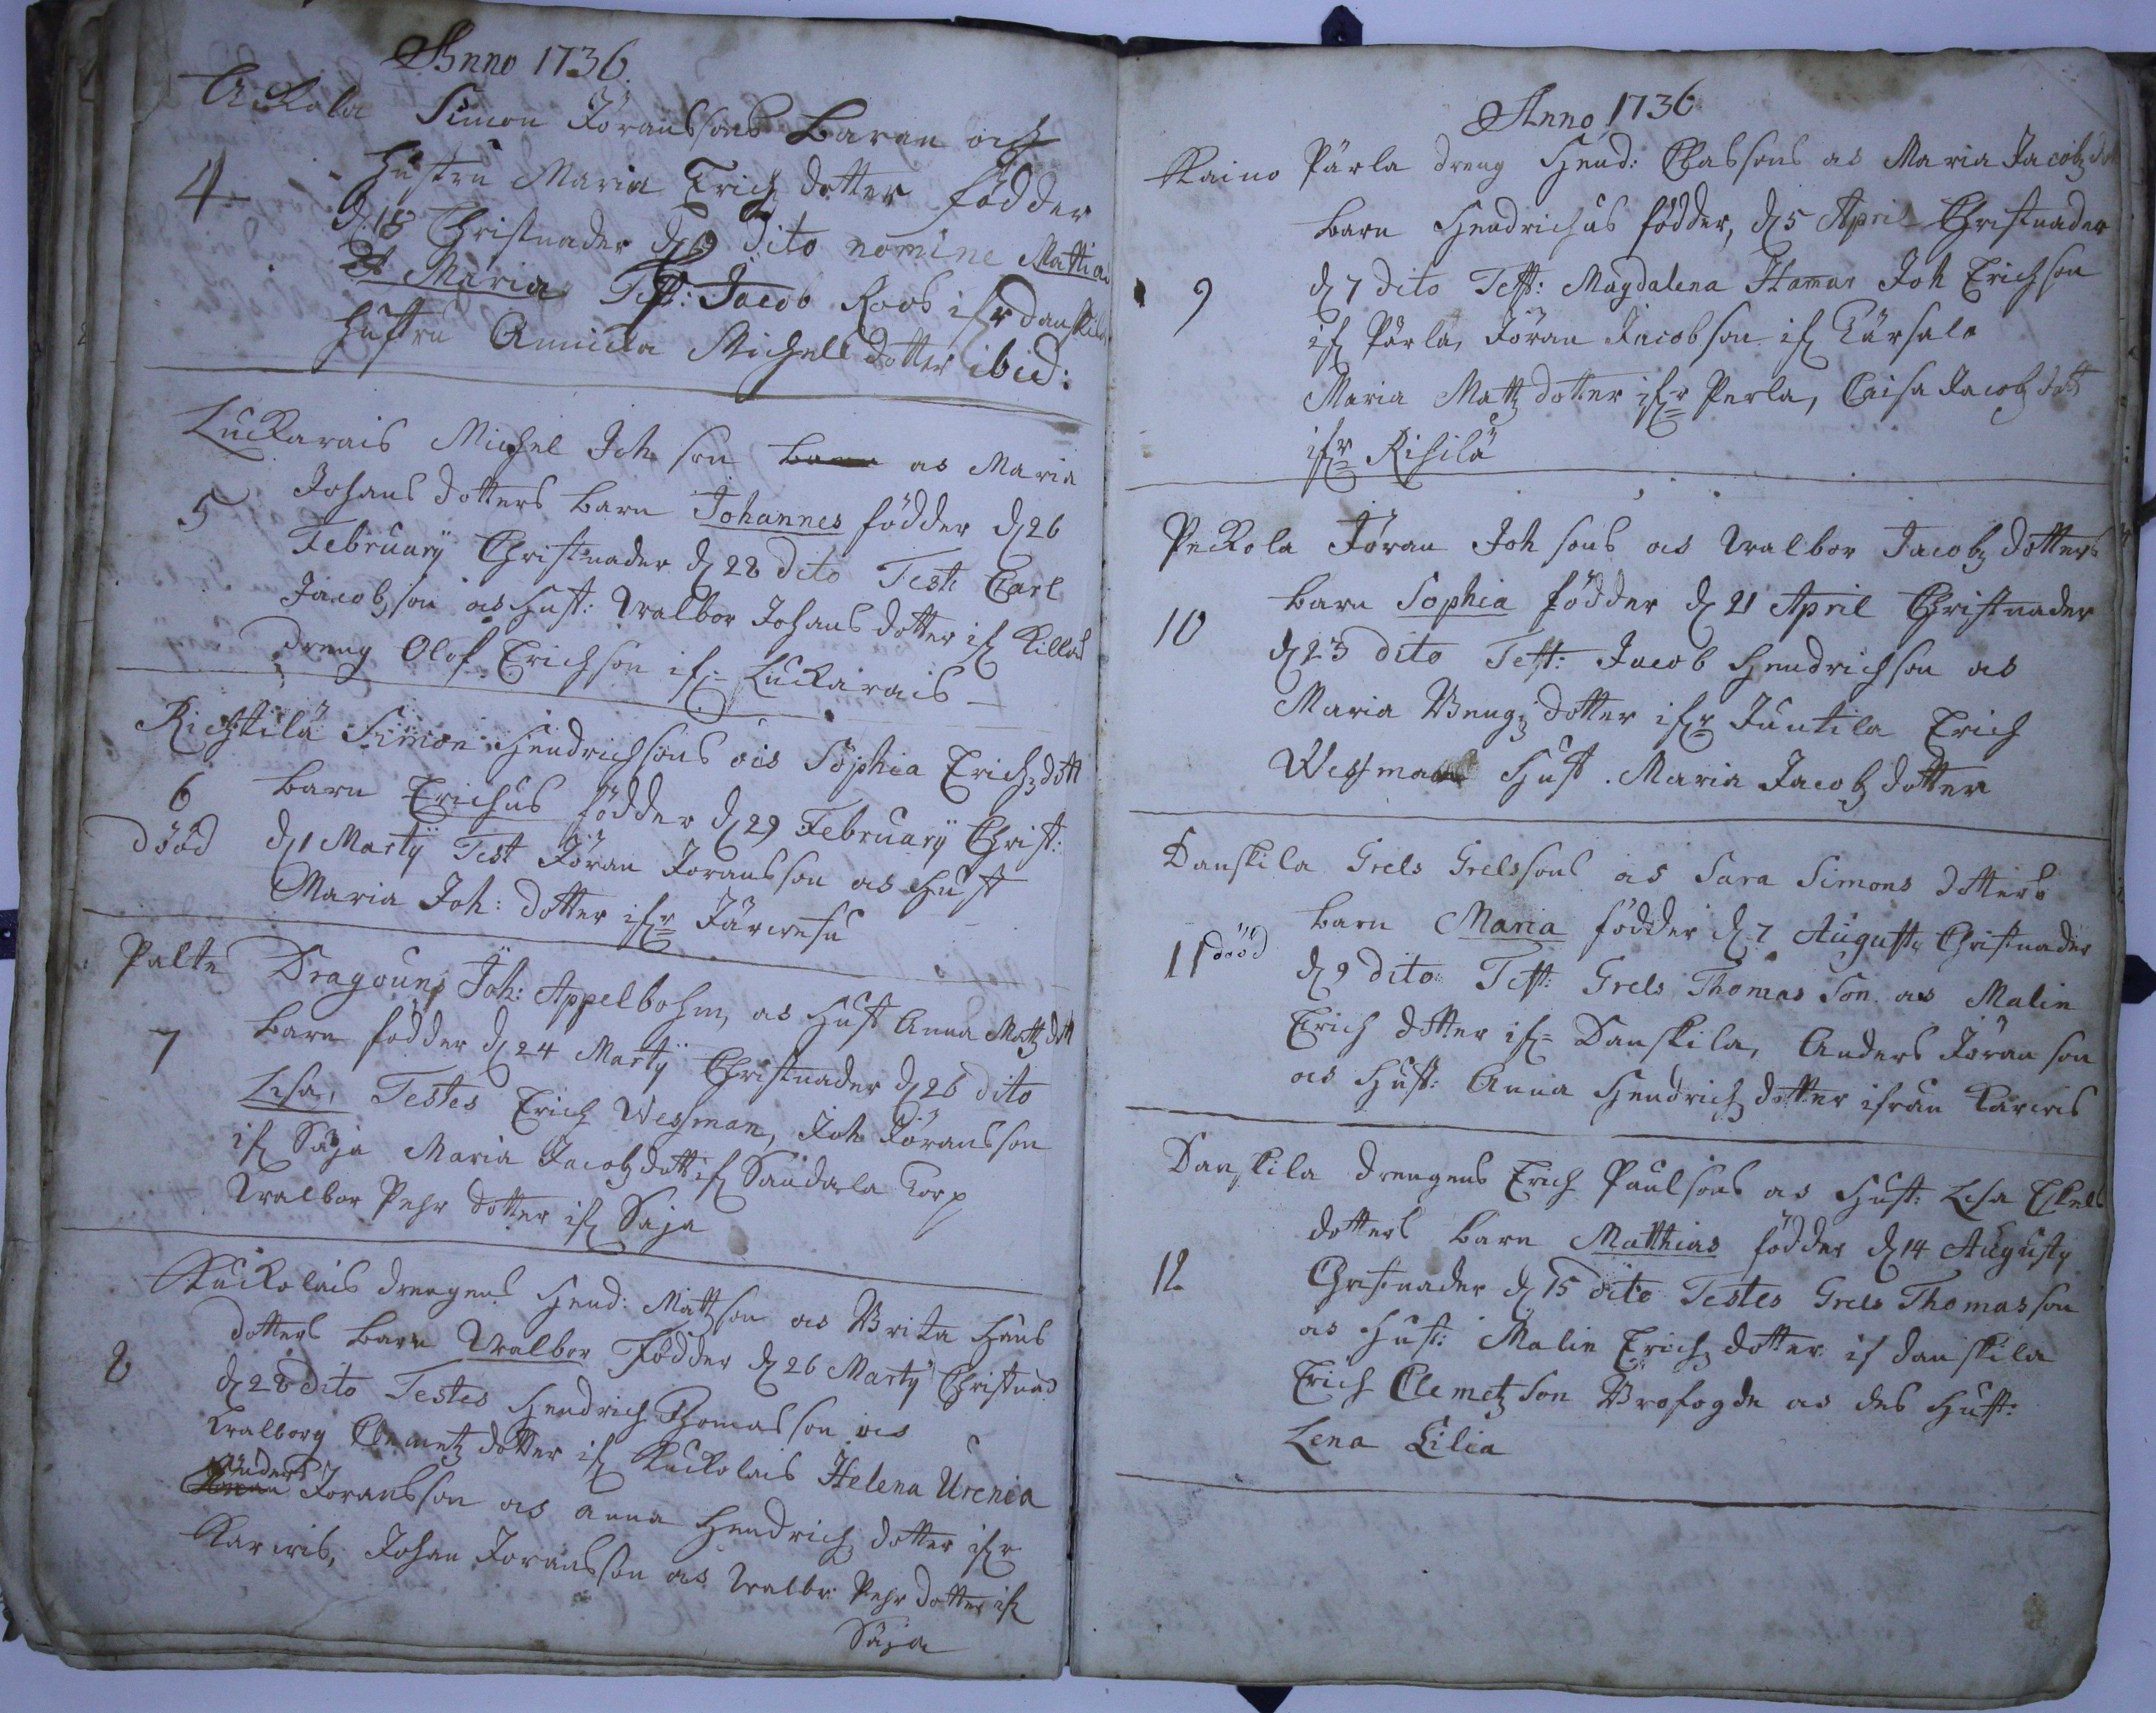 Anno 1736.
Ackola Simon Jöranssons Baren och
Hustru Maria Erichdotter födder
4 d 18 Christnader d 19 dito nomine Mattias
et Maria Test: Jacob Roos ifr danskila
hustru Annicka Michellsdotter ibid:
Luckarais Michel Joh son as Maria
Johans dotters barn Johannes födder d 26
5 Februarÿ Christnader d 28 dito Test Carl
Jacobson as Hust: Walbor Johans dotter if Killas
dreng Olof Erichson if Luckarais
Richtilä Simon Hendrichsons as Sophia Erichdott
6 barn Erichus födder d 29 Februarÿ Christ:
dööd d 1 Martÿ Test Jöran Joransson as Hust
Maria Joh: dotter ifr Järwesu
Palte Dragoun Joh: Appelbohm, as Hust Anna Mattzdott
7 barn födder d 24 Martÿ Christnader d 26 dito
Lisa, Testes Erich Wessman, Joh Joransson
if Saja Maria Jacobzdott if Saudala Corp
Walbor Pehr dotter if Saja
Kuckolais drengens Hend: Mattson as Brita Hans
dotters barn Walbor Födder d 26 Martÿ Christnad
8 d 28 dito Testes Hendrich Thomasson as
Walborg Clemetz dotter if Kuckolais Helena Urenia
Anders Joransson as Anna Hendrich dotter ifr
Karwis, Johan Joransson as Walbr: Pehr dotter if
Saja
Anno 1736
Kaino Pärla dreng Hend: Classons as Maria Jacobzdot
barn Hendrichus födder, d 5 April Christnader
9 d 7 dito Test: Magdalena Hamar Joh Erichson
if Pärla, Jöran Jacobson if Kärsala
Maria Mattz dotter ifr Perla, Caisa Jacobzdott
ifr Risilä
Peckola Jöran Joh sons as Walbor Jacobz dotters
barn Sophia födder d 21 April Christnader
10 d 23 dito Test: Jacob Hendrichson as
Maria Bengz dotter ifr Juntila Erich
Wessman Hust. Maria Jacobzdotter
Danskila Grels Grelssons as Sara Simons dotters
barn Maria födder d 7 Augusty Christnader
11 dööd d 9 dito Test: Grels Thomas Son as Malin
Erich dotter if Danskila, Anders Jöran son
as Hust: Anna Hendrich dotter ifrån Karwis
Danskila drengens Erich Paulsons as Hust: Lisa Eskels
dotters barn Matthias födder d 14 Augusty
12 Christnader d 15 dito Testes Grels Thomasson
as Hust: Malin Erich dotter if danskila
Erich Clemetz Son Brofogde as des Hust:
Lena Lilia